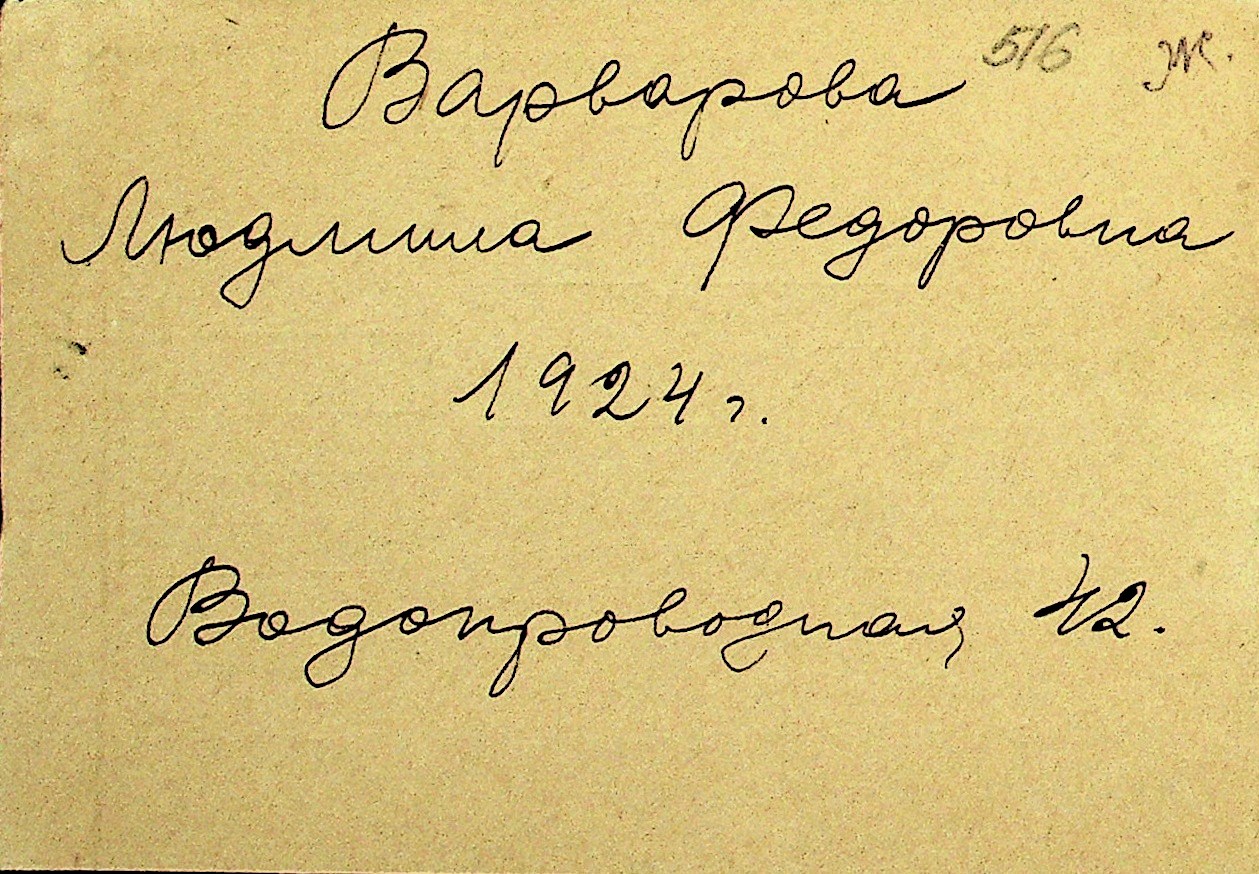 Варварова 516 Ж.
Людмила Федоровна
1924 г.
Водопроводная 42.